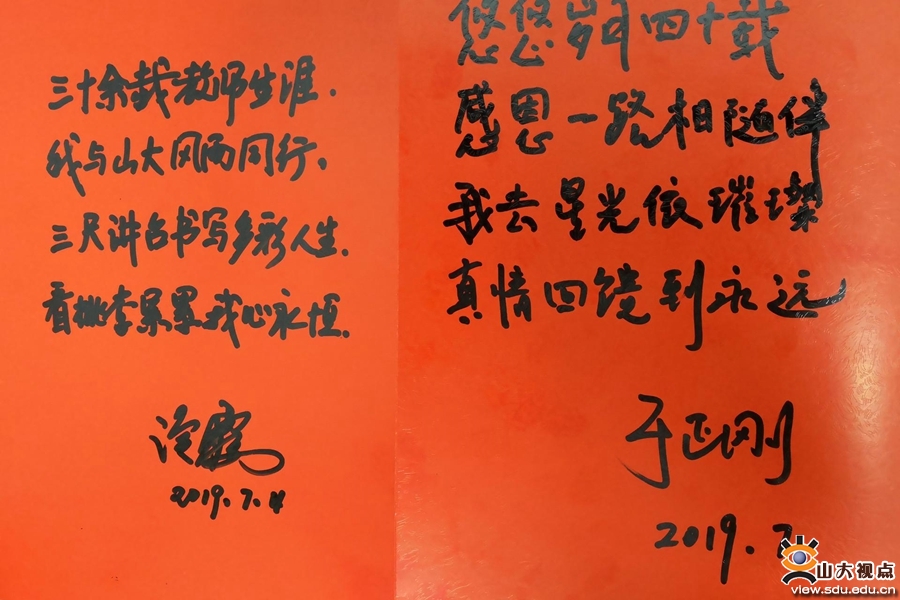 三十余载教师生涯.
我与山大风雨同行、
三尺讲台书写多彩人生.
看桃李累累我心永恒.
2019.7.4
悠悠岁月四十载
感恩一路相随伴
我去星光依璀璨
真情回馈到永远
于正刚
2019.7
山大视点
view.sdu.edu.cn